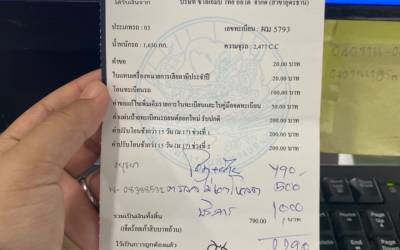 ได้รับเงินจาก บริษัท
ประเภทรถ : 03 เลขทะเบียน : ผม 5793
น้ำหนักรถ : 1,630 กก. ความจุรถ : 2,477 C.C
ค่าขอ 20.00 บาท
ใบแทนเครื่องหมายการเสียภาษีประจำปี 20.00 บาท
โอนทะเบียนรถ 100.00 บาท
ค่าขอแก้ไขเพิ่มเติมรายการในทะเบียนและในคู่มือจดทะเบียน 50.00 บาท
ค่าแผ่นป้ายทะเบียนรถยนต์ออกใหม่ รับปกติ 200.00 บาท
ค่าปรับโอนช้ากว่า 15 วัน (ม.17) ช่วงที่ 1 200.00 บาท
ค่าปรับโอนช้ากว่า 15 วัน (ม.17) ช่วงที่ 2 200.00 บาท
790-
500
บริการ 1000
รวมเป็นเงินทั้งสิ้น 790.00 บาท
(เจ็ดร้อยเก้าสิบบาทถ้วน)
ไว้เป็นการถูกต้องแล้ว